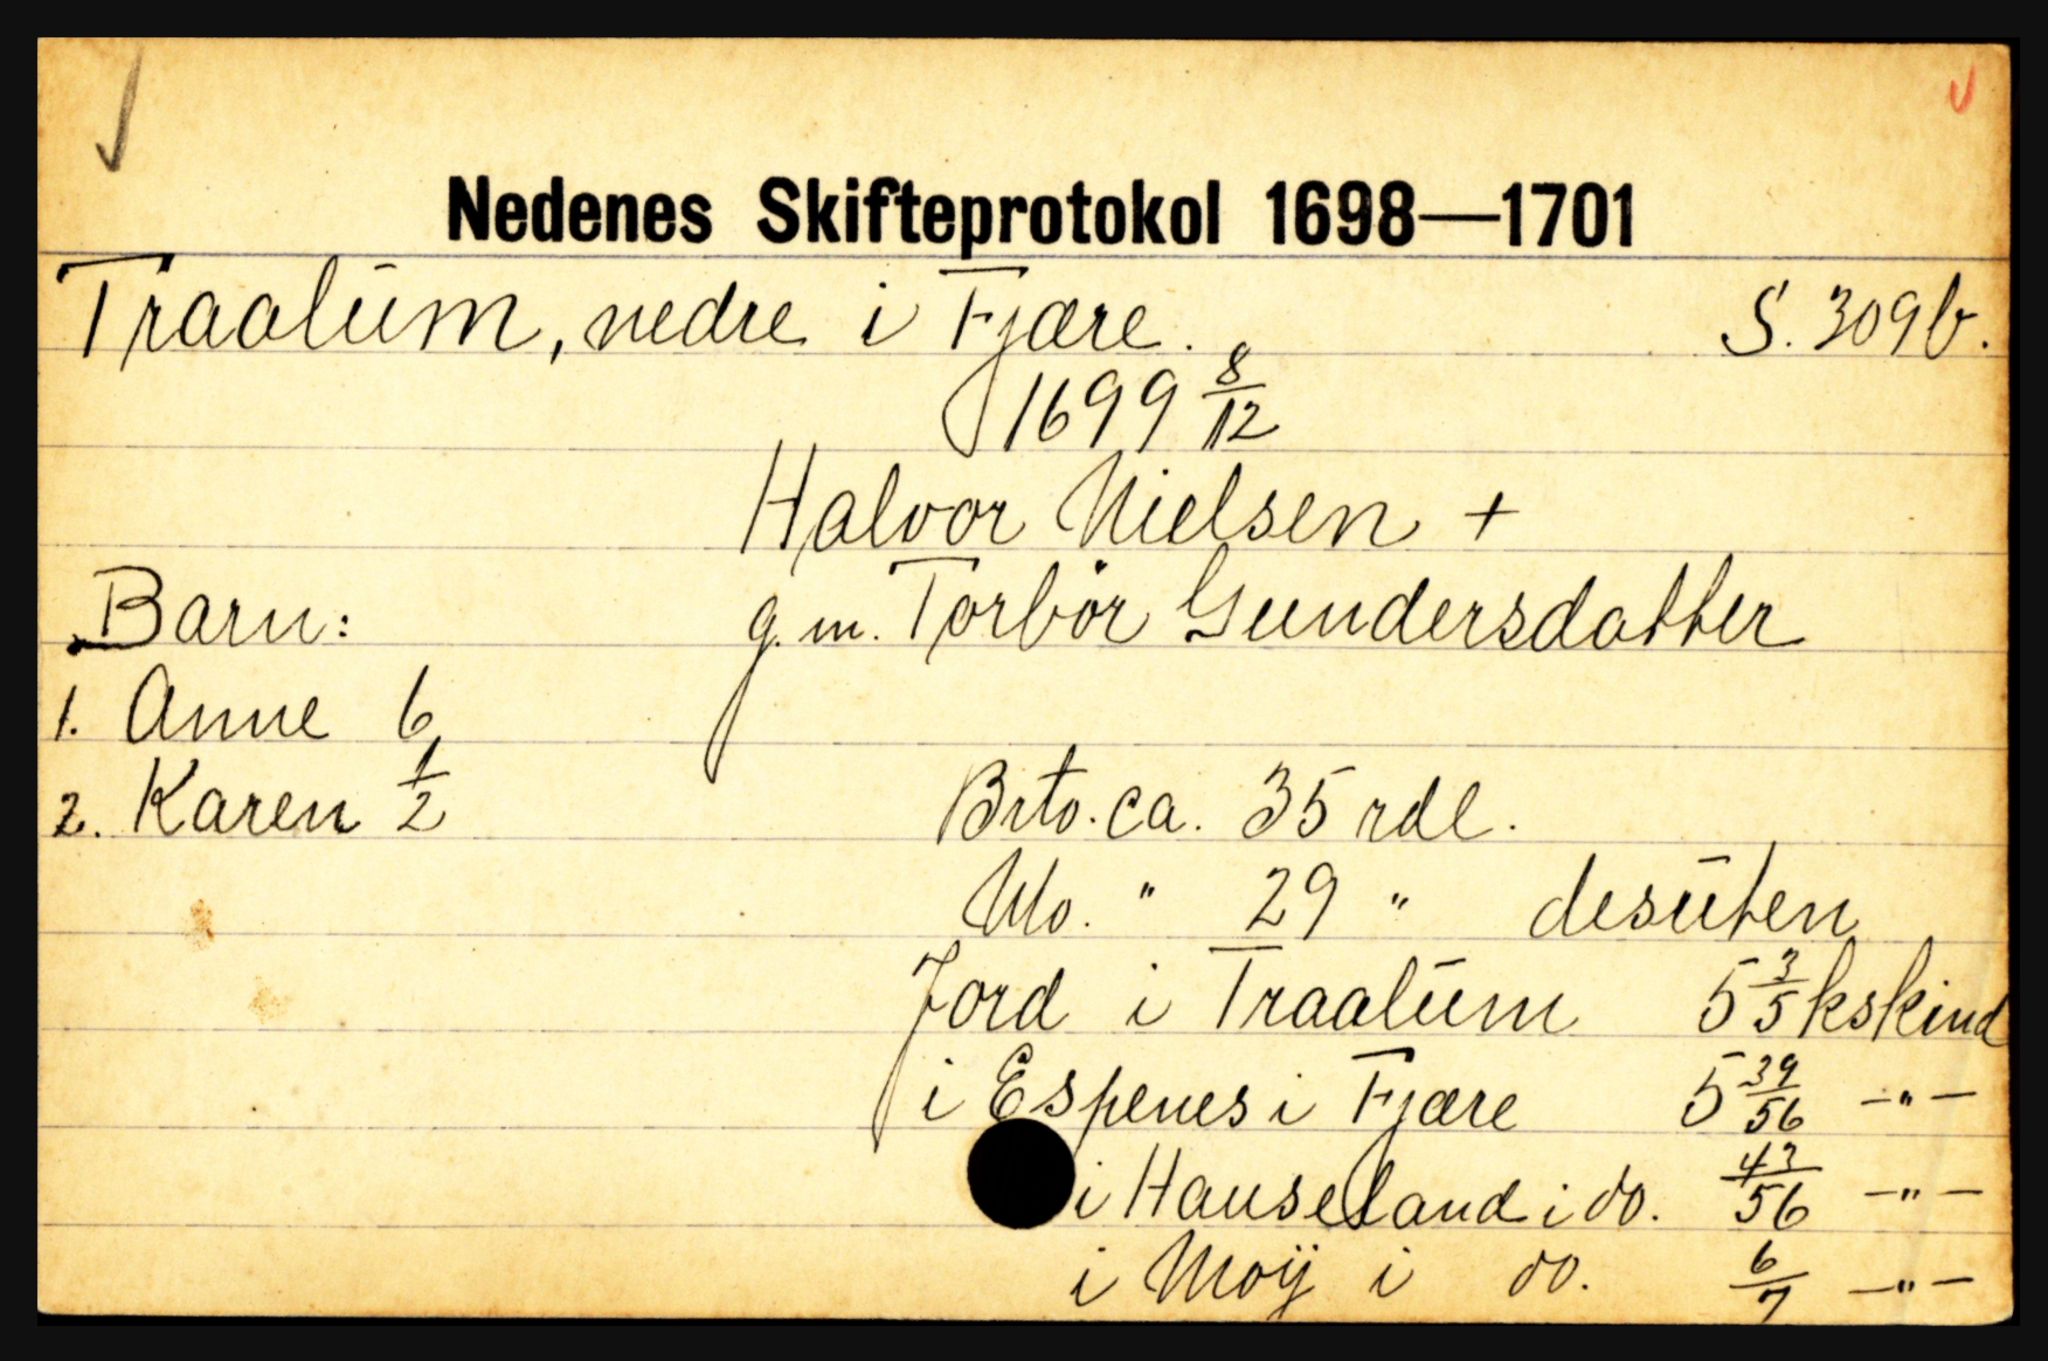 Nedenes Skifteprotokol 1698—1701
Traalum, nedre i Fjære. S. 309b.
1699 8/12
Halvor Nielsen +
Barn: g. m. Torbör Gundersdatter
1. Anne 6
2. Karen 1/2 Brto. ca. 35 rdl.
Nto. " 29 " desuten
Jord i Traalum 5 3/5 kskind
i Espenes i Fjære 5 39/56 —"—
i Hauseland i do. 43/56 —"—
i Moÿ i do. 6/7 —"—